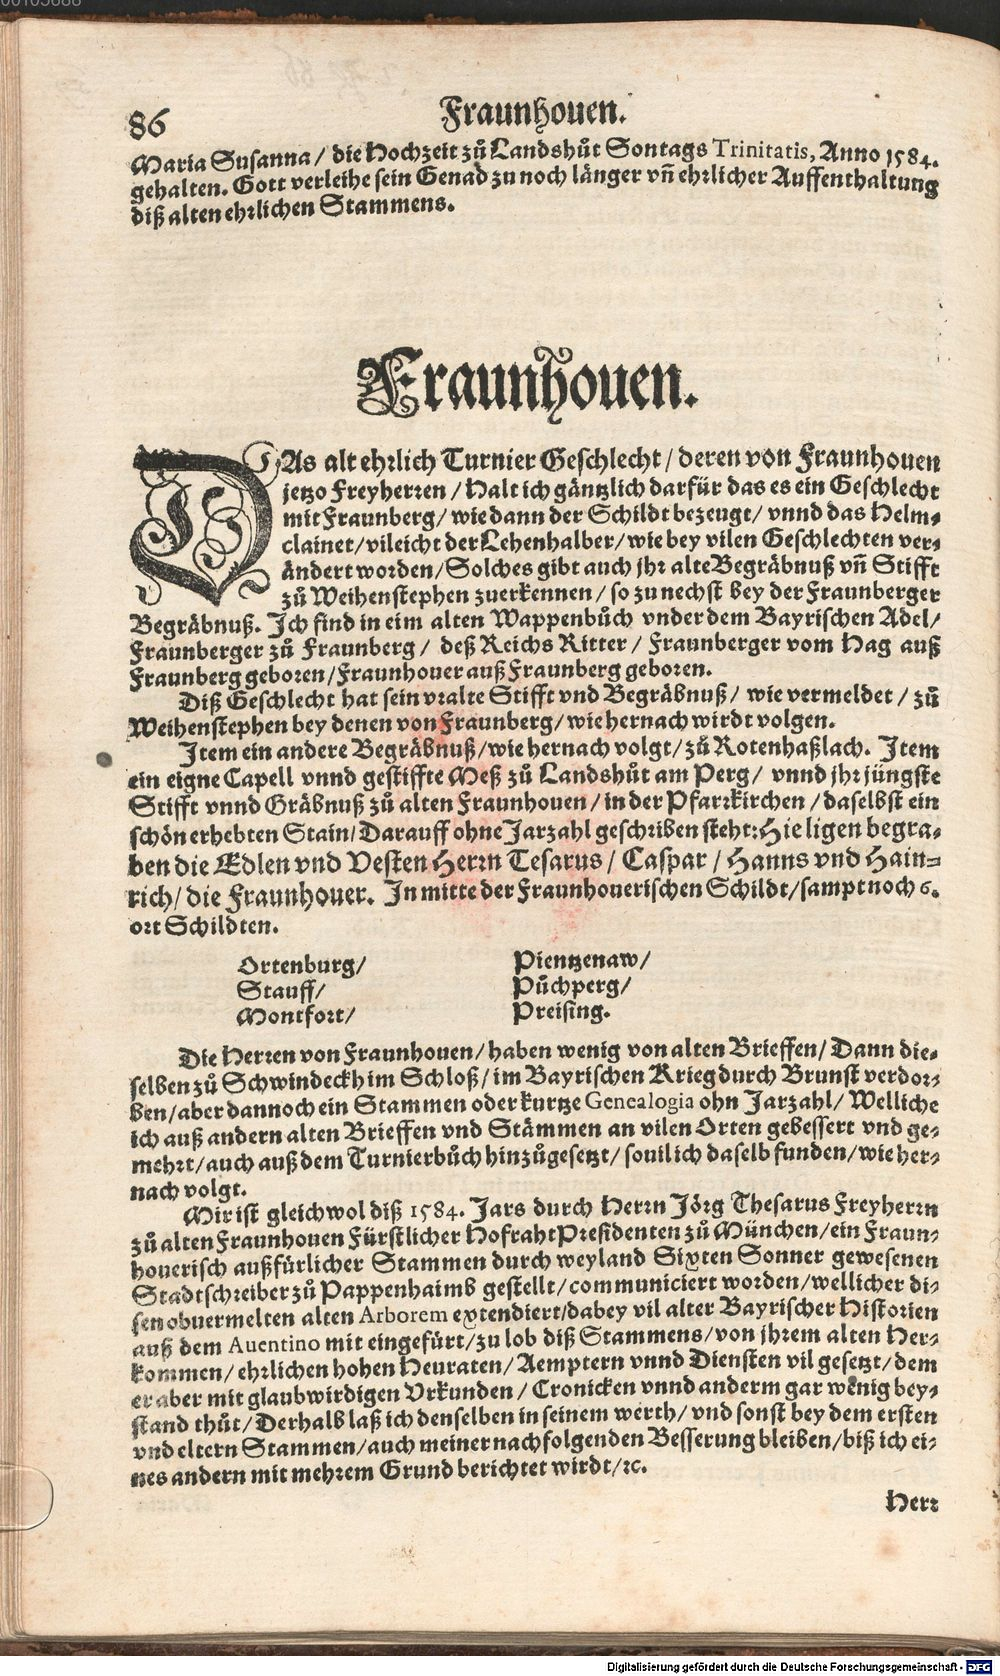 86
Fraunhouen.
Maria Susanna / die Hochzeit zů Landshůt Sontags Trinitatis, Anno 1584.
gehalten. Gott verleihe sein Genad zu noch länger vñ ehrlicher Auffenthaltung
diß alten ehrlichen Stammens.
Fraunhouen.
DAs alt ehrlich Turnier Geschlecht / deren von Fraunhouen
jetzo Freyherren / Halt ich gäntzlich darfür das es ein Geschlecht
mit Fraunberg / wie dann der Schildt bezeugt / vnnd das Helm-
clainet / vileicht der Lehenhalber / wie bey vilen Geschlechten ver-
ändert worden / Solches gibt auch jhr alte Begräbnuß vñ Stifft
zů Weihenstephen zuerkennen / so zu nechst bey der Fraunberger
Begräbnuß. Ich find in eim alten Wappenbůch vnder dem Bayrischen Adel /
Fraunberger zů Fraunberg / deß Reichs Ritter / Fraunberger vom Hag auß
Fraunberg geboren / Fraunhouer auß Fraunberg geboren.
Diß Geschlecht hat sein vralte Stifft vnd Begräbnuß / wie vermeldet / zů
Weihenstephen bey denen von Fraunberg / wie hernach wirdt volgen.
Item ein andere Begräbnuß / wie hernach volgt / zů Rotenhaßlach. Item
ein eigne Capell vnnd gestiffte Meß zů Landshůt am Perg / vnnd jhr jüngste
Stifft vnnd Gräbnuß zů alten Fraunhouen / in der Pfarrkirchen / daselbst ein
schön erhebten Stain / Darauff ohne Jarzahl geschriben steht: Hie ligen begra-
ben die Edlen vnd Vesten Herrn Tesarus / Caspar / Hanns vnd Hain-
rich / die Fraunhouer. In mitte der Fraunhouerischen Schildt / sampt noch 6.
ort Schildten.
Ortenburg /
Stauff /
Montfort /
Pientzenaw /
Půchperg /
Preising.
Die Herren von Fraunhouen / haben wenig von alten Brieffen / Dann die-
selben zů Schwindeckh im Schloß / im Bayrischen Krieg durch Brunst verdor-
ben / aber dannoch ein Stammen oder kurtze Genealogia ohn Jarzahl / Welliche
ich auß andern alten Brieffen vnd Stämmen an vilen Orten gebessert vnd ge-
mehrt / auch auß dem Turnierbůch hinzůgesetzt / souil ich daselb funden / wie her-
nach volgt.
Mir ist gleichwol diß 1584. Jars durch Herrn Jörg Thesarus Freyherrn
zů alten Fraunhouen Fürstlicher Hofraht Presidenten zů München / ein Fraun-
houerisch außfürlicher Stammen durch weyland Sixten Sonner gewesenen
Stadtschreiber zů Pappenhaimb gestellt / communiciert worden / wellicher di-
sen obuermelten alten Arborem extendiert / dabey vil alter Bayrischer Historien
auß dem Auentino mit eingefürt / zu lob diß Stammens / von jhrem alten Her-
kommen / ehrlichen hohen Heuraten / Aemptern vnnd Diensten vil gesetzt / dem
er aber mit glaubwirdigen Vrkunden / Cronicken vnnd anderm gar wenig bey-
stand thůt / Derhalb laß ich denselben in seinem werth / vnd sonst bey dem ersten
vnd eltern Stammen / auch meiner nachfolgenden Besserung bleiben / biß ich ei-
nes andern mit mehrem Grund berichtet wirdt / ꝛc.
Herr
Digitalisierung gefördert durch die Deutsche Forschungsgemeinschaft - DFG